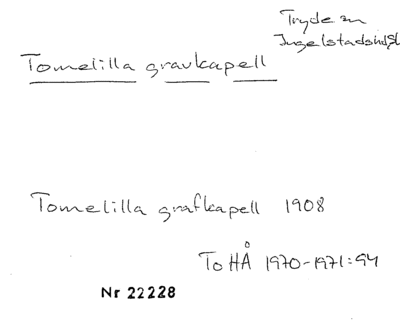 Tryde sn
Ingelstads hd, Sk
Tomelilla gravkapell
Tomelilla grafkapell 1908
ToHÅ 1970-1971:94
Nr 22228